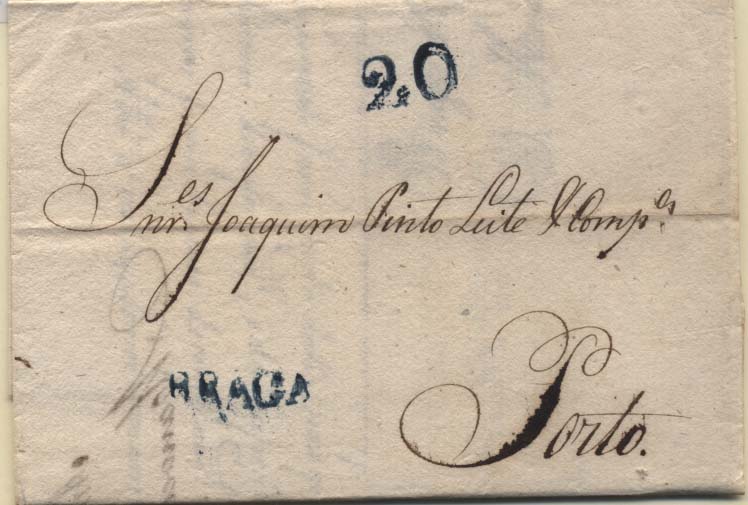 20
Snr.es Joaquim Pinto Leite & Comp.es
BRAGA
Porto.